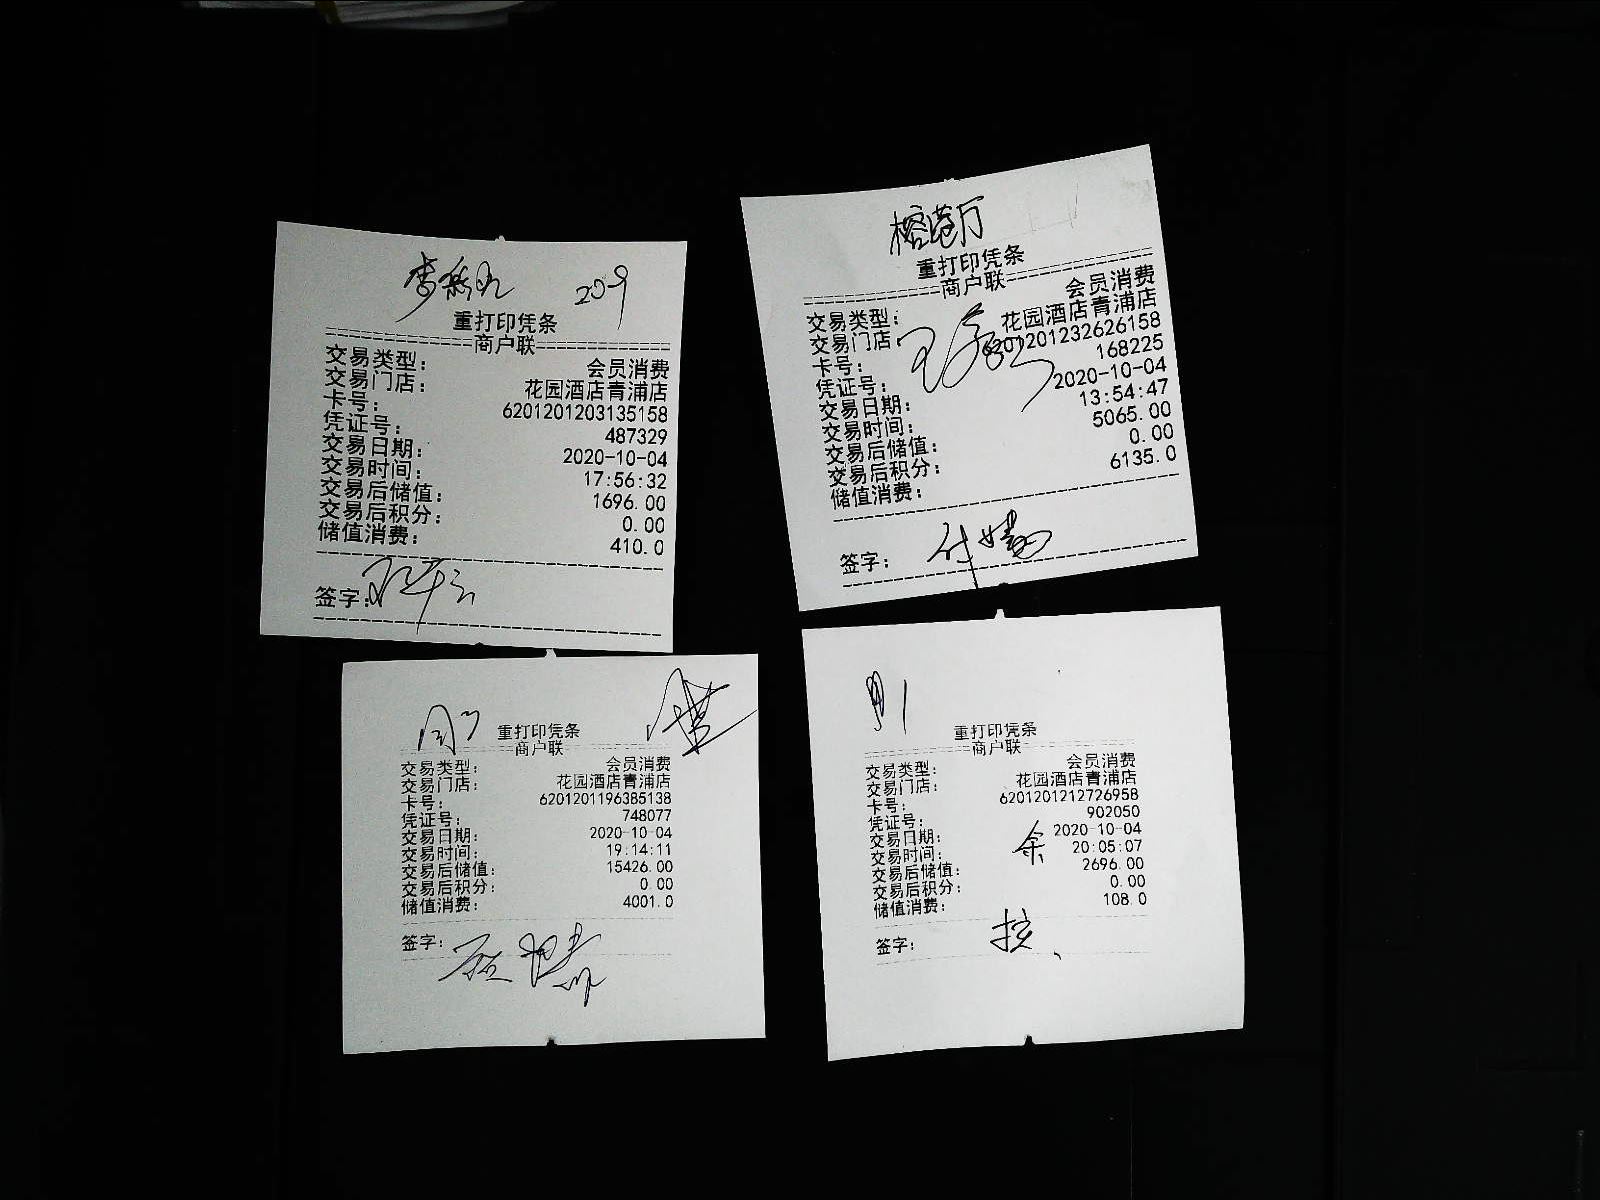 209
重打印凭条
商户联
交易类型： 会员消费
交易门店： 花园酒店青浦店
卡号： 6201201203135158
凭证号： 487329
交易日期： 2020-10-04
交易时间： 17:56:32
交易后储值： 1696.00
交易后积分： 0.00
储值消费： 410.0
签字：
榕港厅
重打印凭条
商户联
交易类型： 会员消费
交易门店： 花园酒店青浦店
卡号： 6201201232626158
凭证号： 168225
交易日期： 2020-10-04
交易时间： 13:54:47
交易后储值： 5065.00
交易后积分： 0.00
储值消费： 6135.0
签字：
重打印凭条
商户联
交易类型： 会员消费
交易门店： 花园酒店青浦店
卡号： 6201201196385138
凭证号： 748077
交易日期： 2020-10-04
交易时间： 19:14:11
交易后储值： 15426.00
交易后积分： 0.00
储值消费： 4001.0
签字：
重打印凭条
商户联
交易类型： 会员消费
交易门店： 花园酒店青浦店
卡号： 6201201212726958
凭证号： 902050
交易日期： 2020-10-04
交易时间： 20:05:07
余
交易后储值： 2696.00
交易后积分： 0.00
储值消费： 108.0
签字：